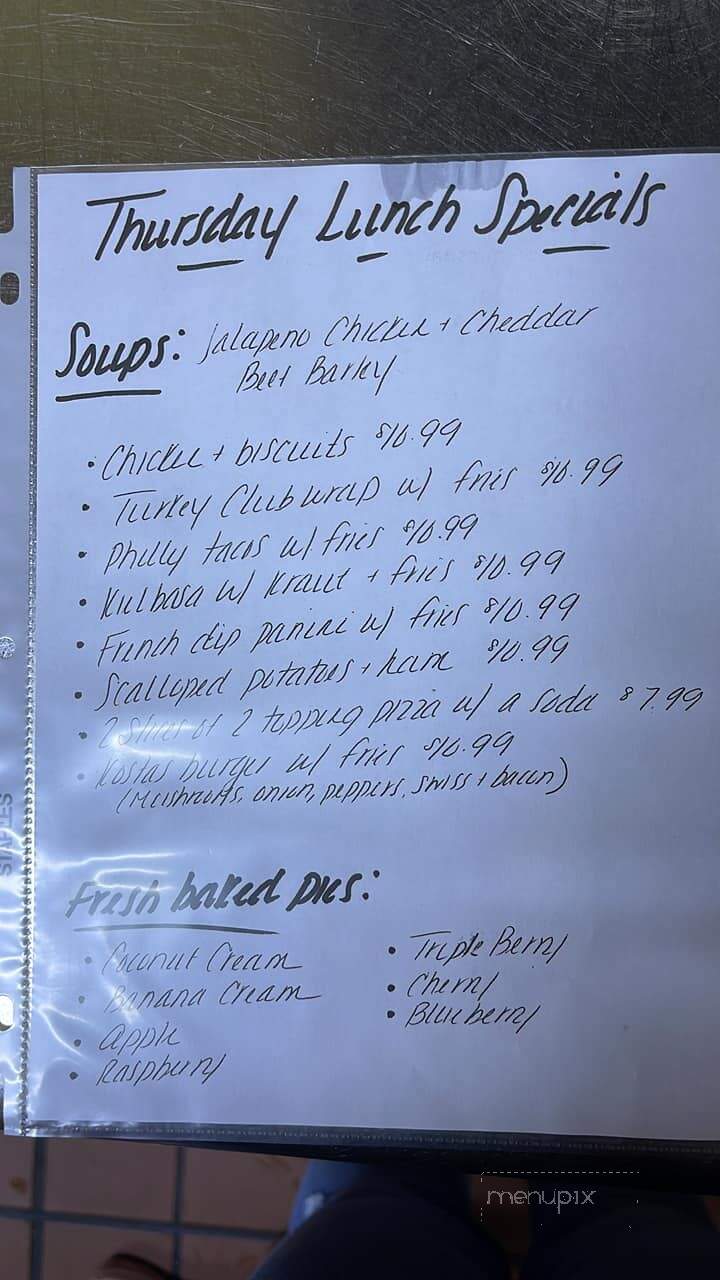 Thursday Lunch Specials
Soups: Jalapeno Chicken + Cheddar
Beef Barley
• Chicken + biscuits $10.99
• Turkey Club wrap w/ fries $10.99
• Philly tacos w/ fries $10.99
• Kielbasa w/ Kraut + fries $10.99
• French dip panini w/ fries $10.99
• Scalloped potatoes + ham $10.99
• 2 Slices of 2 topping pizza w/ a soda $7.99
• Kostas burger w/ fries $10.99
(Mushrooms, onion, peppers, swiss + bacon)
Fresh baked pies:
• Coconut Cream
• Banana Cream
• apple
• Raspberry
• Triple Berry
• Cherry
• Blueberry
STAPLES
menupix